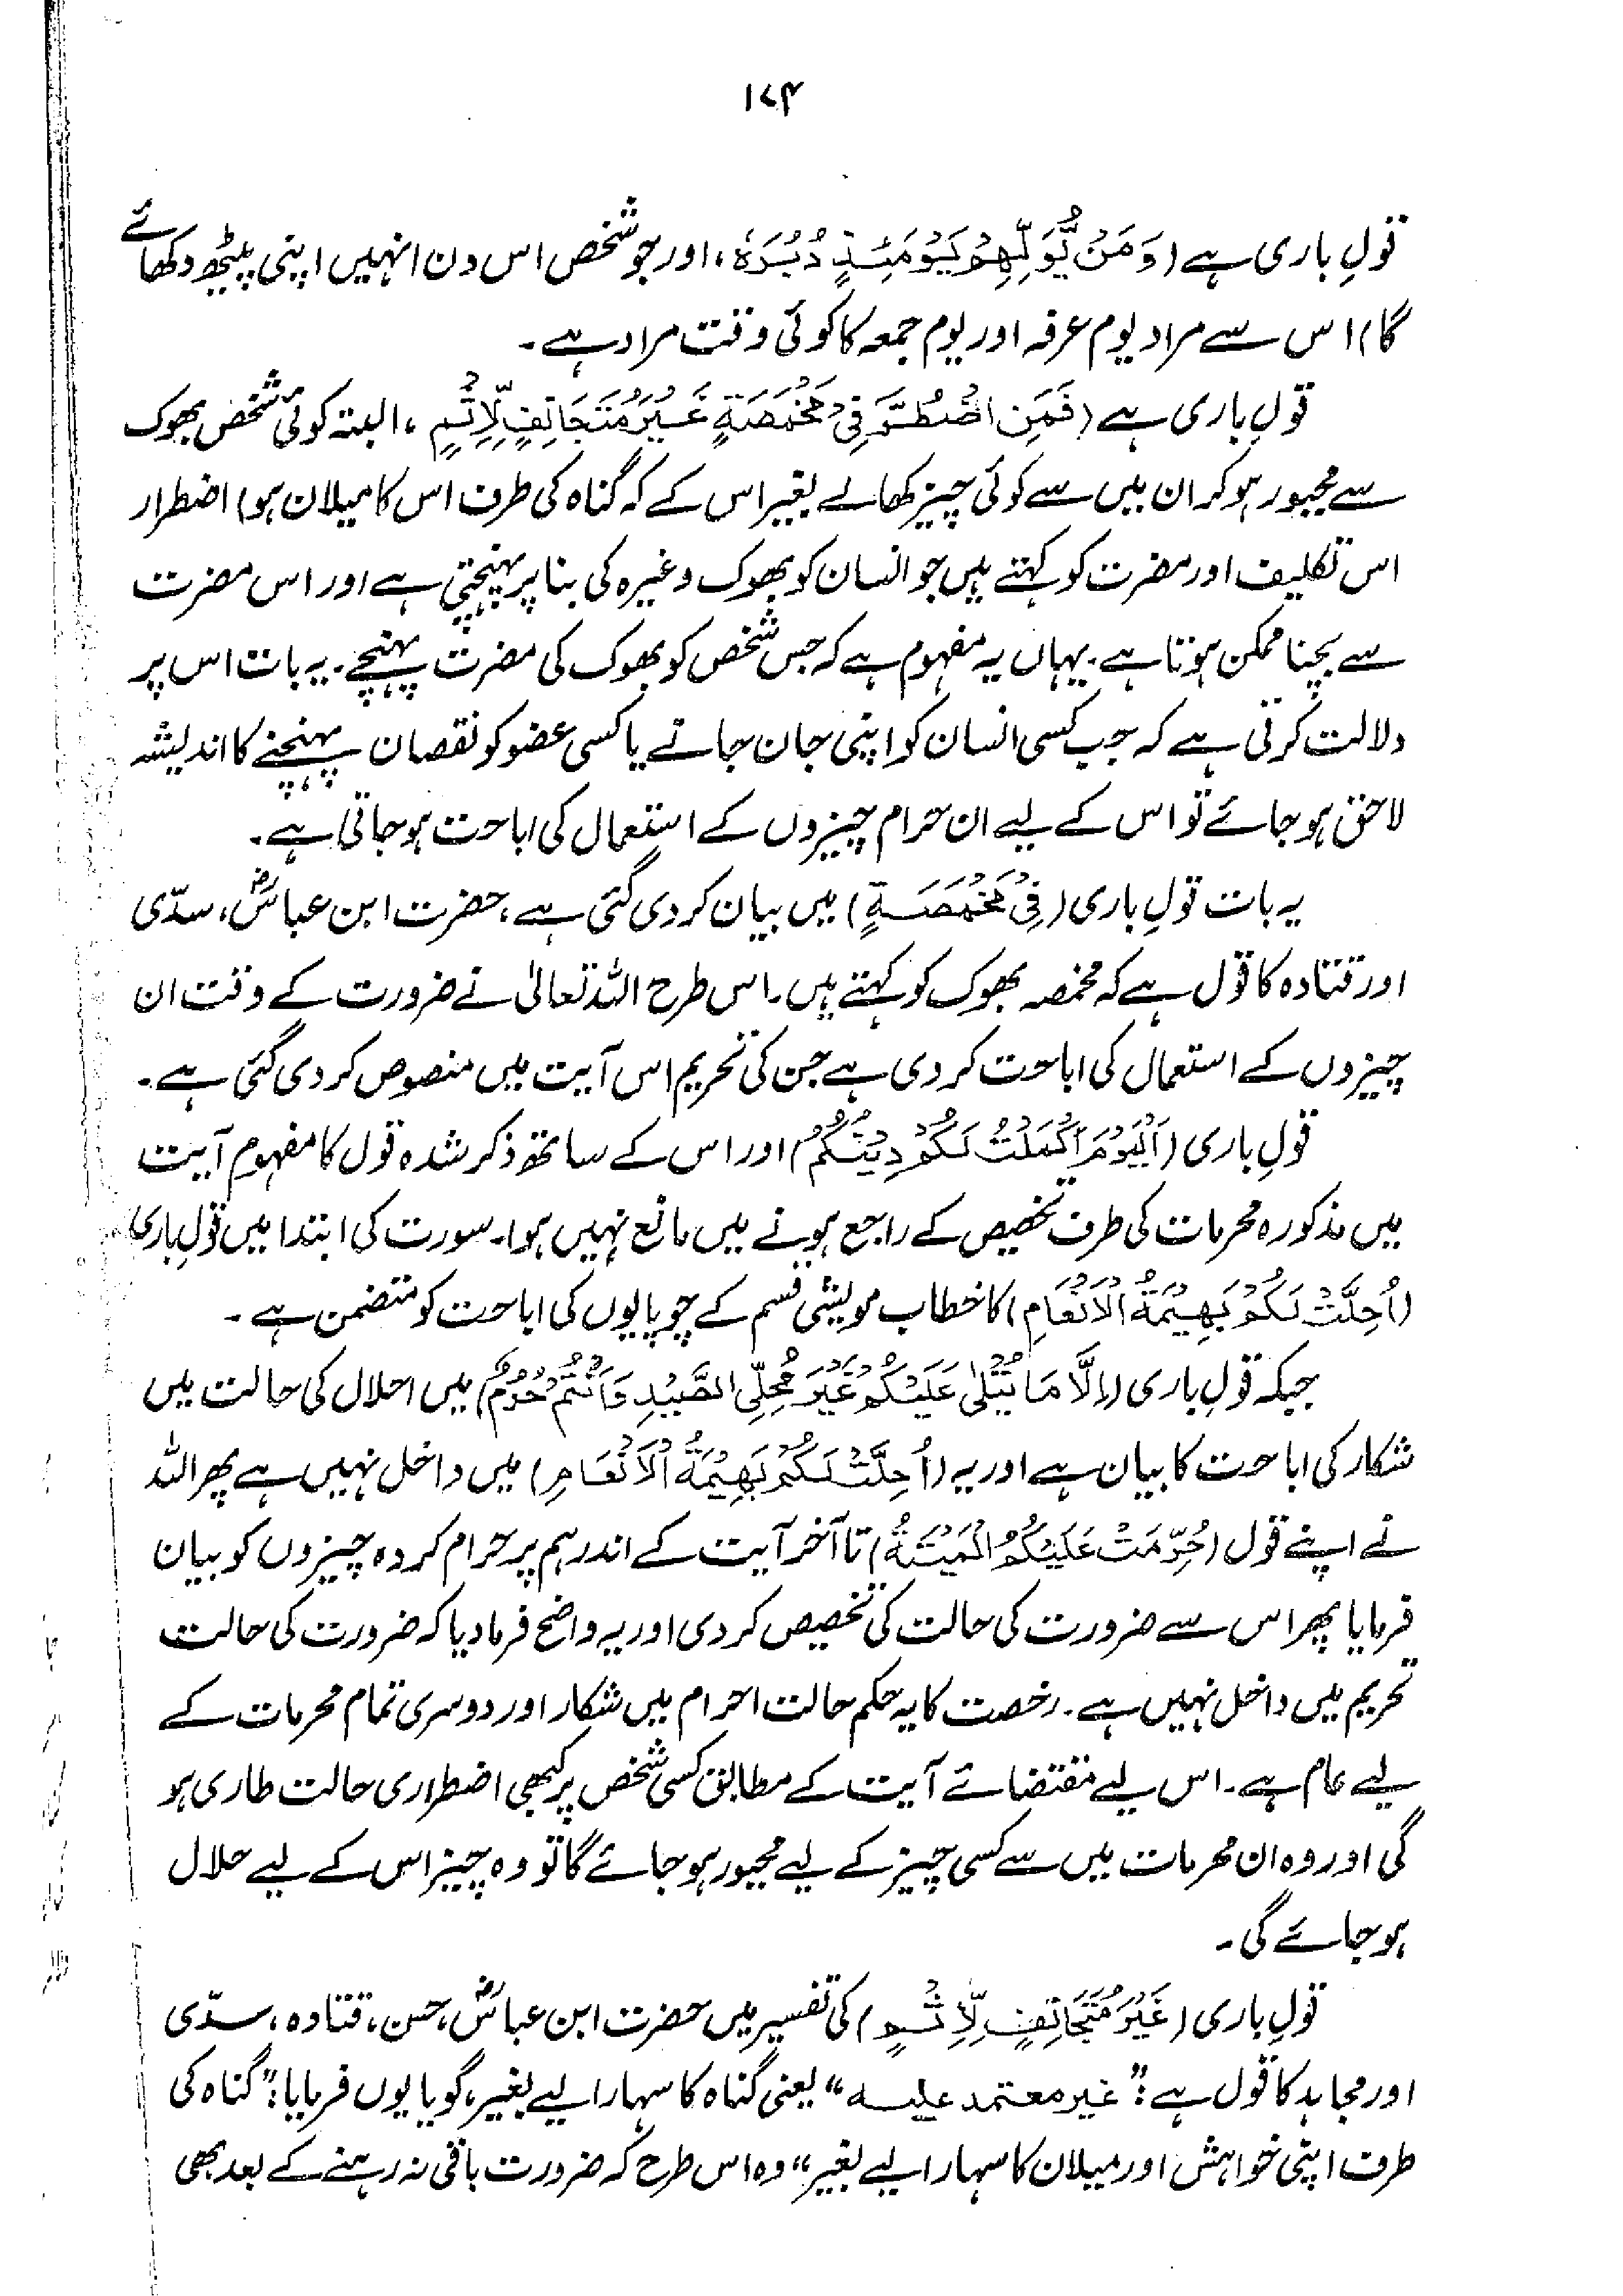 ۱۷۴
قولِ باری ہے (وَمَنْ يُّوَلِّهِمْ يَوْمَئِذٍ دُبُرَهٗ، اور جو شخص اس دن انہیں اپنی پیٹھ دکھائے
گا) اس سے مراد یوم عرفہ اور یوم جمعہ کا کوئی وقت مراد ہے۔
قولِ باری ہے (فَمَنِ اضْطُرَّ فِيْ مَخْمَصَةٍ غَيْرَ مُتَجَانِفٍ لِّاِثْمٍ، البتہ کوئی شخص بھوک
سے مجبور ہو کر ان میں سے کوئی چیز کھالے بغیر اس کے کہ گناہ کی طرف اس کا میلان ہو) اضطرار
اس تکلیف اور مضرت کو کہتے ہیں جو انسان کو بھوک وغیرہ کی بنا پر پہنچتی ہے اور اس مضرت
سے بچنا ممکن ہوتا ہے۔ یہاں یہ مفہوم ہے کہ جس شخص کو بھوک کی مضرت پہنچے۔ یہ بات اس پر
دلالت کرتی ہے کہ جب کسی انسان کو اپنی جان جانے یا کسی عضو کو نقصان پہنچنے کا اندیشہ
لاحق ہو جائے تو اس کے لیے ان حرام چیزوں کے استعمال کی اباحت ہو جاتی ہے۔
یہ بات قولِ باری (فِيْ مَخْمَصَةٍ) میں بیان کر دی گئی ہے، حضرت ابن عباسؓ، سدّی
اور قتادہ کا قول ہے کہ مخمصہ بھوک کو کہتے ہیں۔ اس طرح اللہ تعالیٰ نے ضرورت کے وقت ان
چیزوں کے استعمال کی اباحت کر دی ہے جن کی تحریم اس آیت میں منصوص کر دی گئی ہے۔
قولِ باری (اَلْيَوْمَ اَكْمَلْتُ لَكُمْ دِيْنَكُمْ) اور اس کے ساتھ ذکر شدہ قول کا مفہوم آیت
میں مذکورہ محرمات کی طرف تخصیص کے راجع ہونے میں مانع نہیں ہوا۔ سورت کی ابتدا میں قولِ باری
(اُحِلَّتْ لَكُمْ بَهِيْمَةُ الْاَنْعَامِ) کا خطاب مویشی قسم کے چوپایوں کی اباحت کو متضمن ہے۔
جبکہ قولِ باری (اِلَّا مَا يُتْلٰى عَلَيْكُمْ غَيْرَ مُحِلِّي الصَّيْدِ وَاَنْتُمْ حُرُمٌ) میں احلال کی حالت میں
شکار کی اباحت کا بیان ہے اور یہ (اُحِلَّتْ لَكُمْ بَهِيْمَةُ الْاَنْعَامِ) میں داخل نہیں ہے پھر اللہ
نے اپنے قول (حُرِّمَتْ عَلَيْكُمُ الْمَيْتَةُ) تا آخر آیت کے اندر ہم پر حرام کردہ چیزوں کو بیان
فرمایا پھر اس سے ضرورت کی حالت کی تخصیص کر دی اور یہ واضح فرما دیا کہ ضرورت کی حالت
تحریم میں داخل نہیں ہے۔ رخصت کا یہ حکم حالت احرام میں شکار اور دوسری تمام محرمات کے
لیے عام ہے۔ اس لیے مقتضائے آیت کے مطابق کسی شخص پر کبھی اضطراری حالت طاری ہو
گی اور وہ ان محرمات میں سے کسی چیز کے لیے مجبور ہو جائے گا تو وہ چیز اس کے لیے حلال
ہو جائے گی۔
قولِ باری (غَيْرَ مُتَجَانِفٍ لِّاِثْمٍ) کی تفسیر میں حضرت ابن عباسؓ، حسن، قتادہ، سدّی
اور مجاہد کا قول ہے: “غیر معتمد علیہ” یعنی گناہ کا سہارا لیے بغیر، گویا یوں فرمایا: “گناہ کی
طرف اپنی خواہش اور میلان کا سہارا لیے بغیر” وہ اس طرح کہ ضرورت باقی نہ رہنے کے بعد بھی